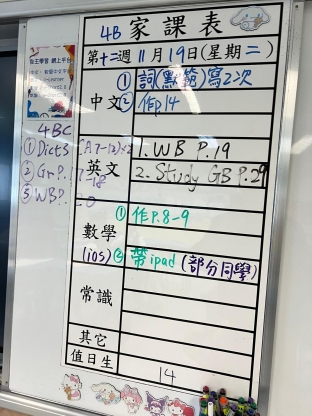 4B 家課表
第十二週 11月19日(星期二)
中文
① 詞(默範)寫2次
② 作p14
英文
1. WB P.19
2. Study GB P.29
數學
① 作P.8-9
(ios) ② 帶ipad (部分同學)
常識
其它
值日生
14
自主學習 網上平台
4BC
① Dict3
② Gr P.17
-18
③ WBP.